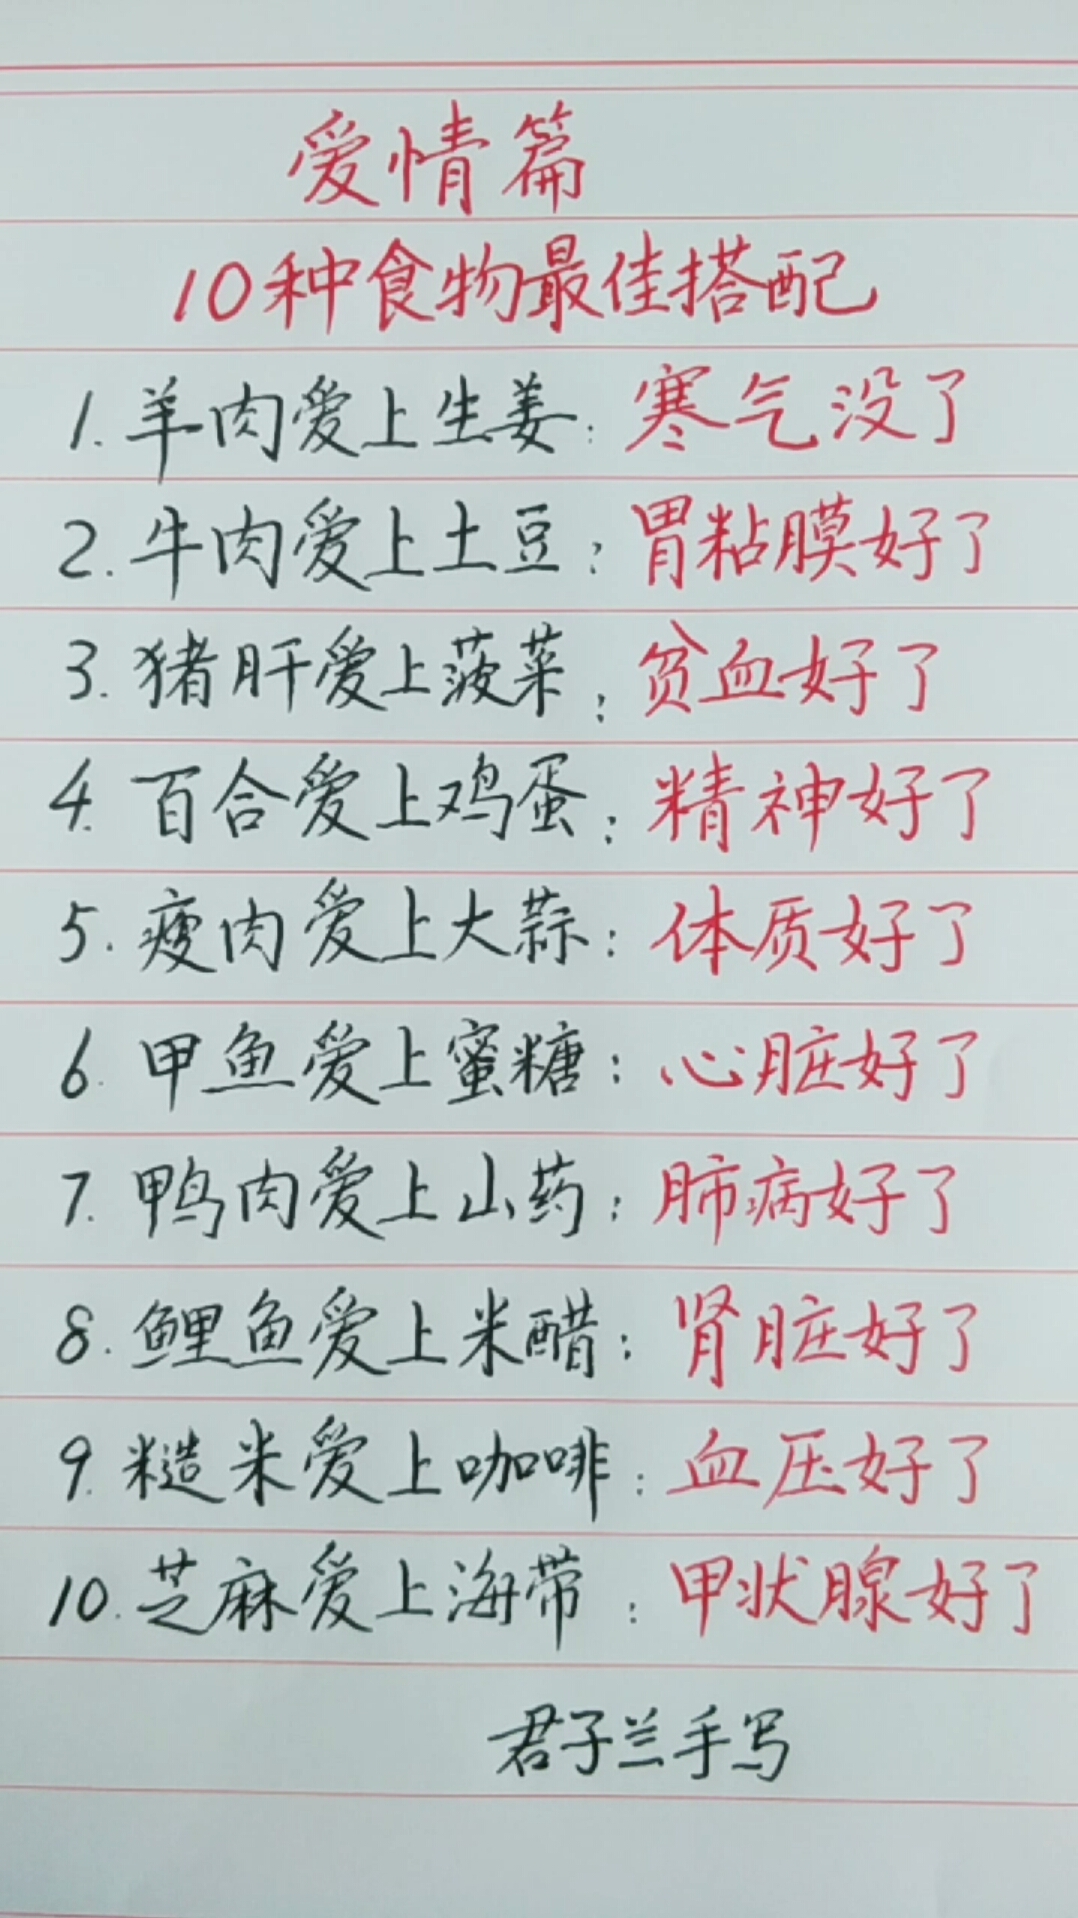 爱情篇
10种食物最佳搭配
1.羊肉爱上生姜:寒气没了
2.牛肉爱上土豆:胃粘膜好了
3.猪肝爱上菠菜:贫血好了
4.百合爱上鸡蛋:精神好了
5.瘦肉爱上大蒜:体质好了
6.甲鱼爱上蜜糖:心脏好了
7.鸭肉爱上山药:肺病好了
8.鲤鱼爱上米醋:肾脏好了
9.糙米爱上咖啡:血压好了
10.芝麻爱上海带:甲状腺好了
君子兰手写